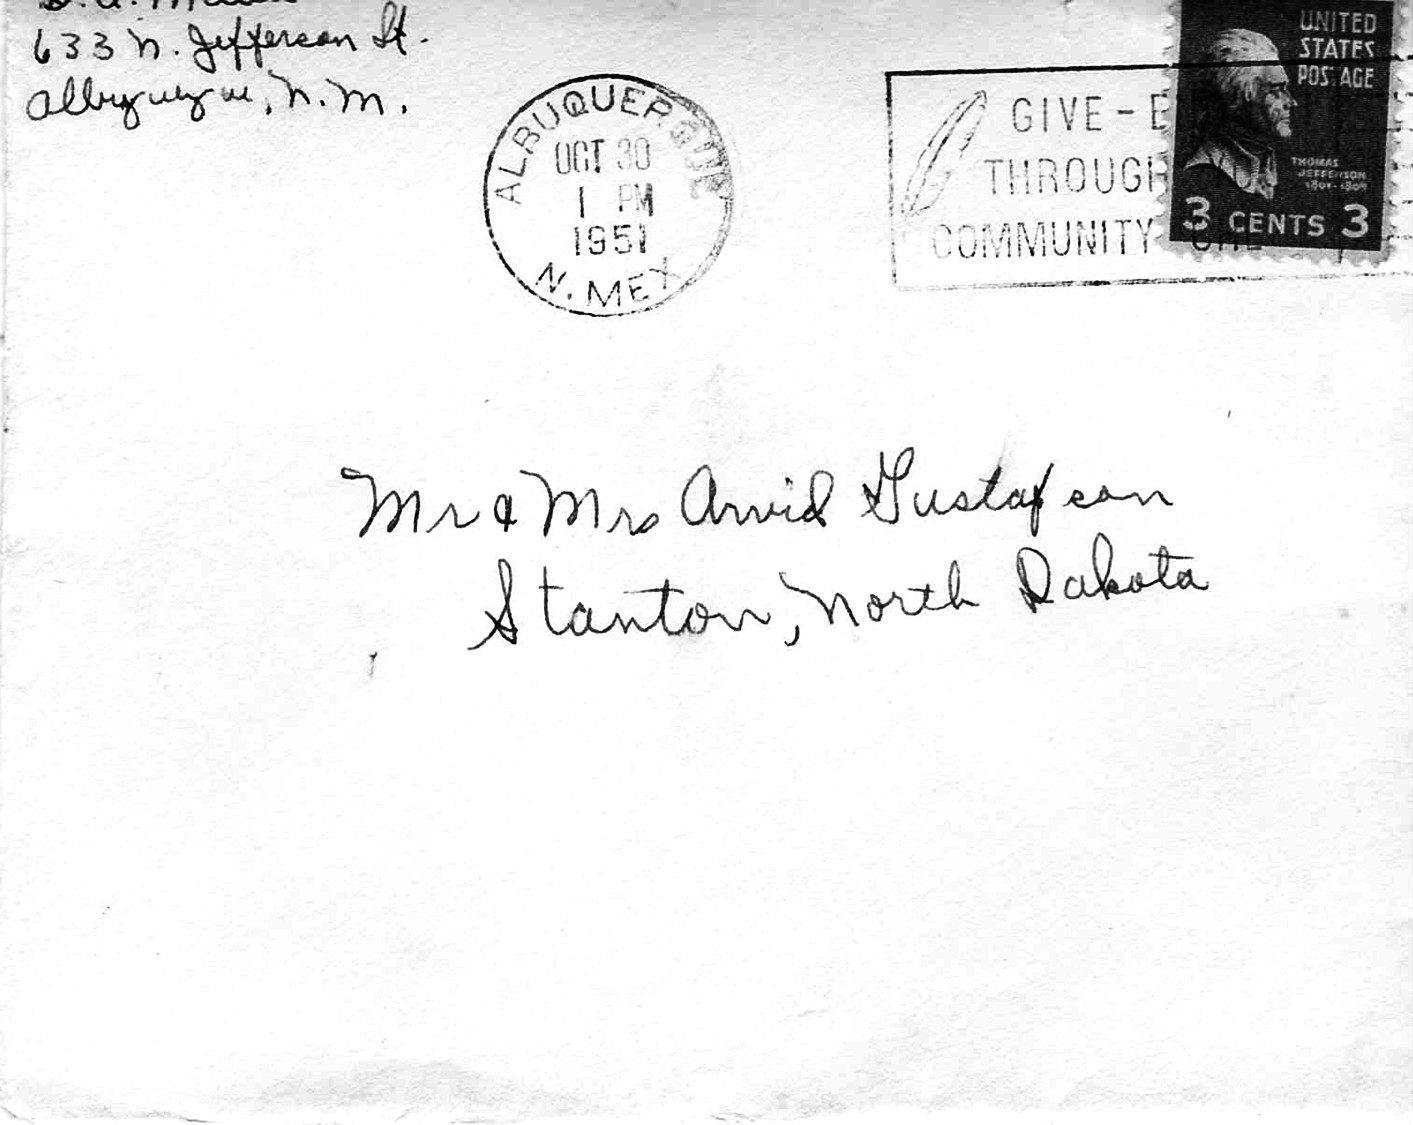 633 N. Jefferson St.
Albuquerque, N.M.
ALBUQUERQUE
OCT 30
1 PM
1951
N. MEX
GIVE - E
THROUGH
COMMUNITY CHE
UNITED
STATES
POSTAGE
THOMAS
JEFFERSON
1801-1809
3 CENTS 3
Mr & Mrs Arvid Gustafson
Stanton, North Dakota